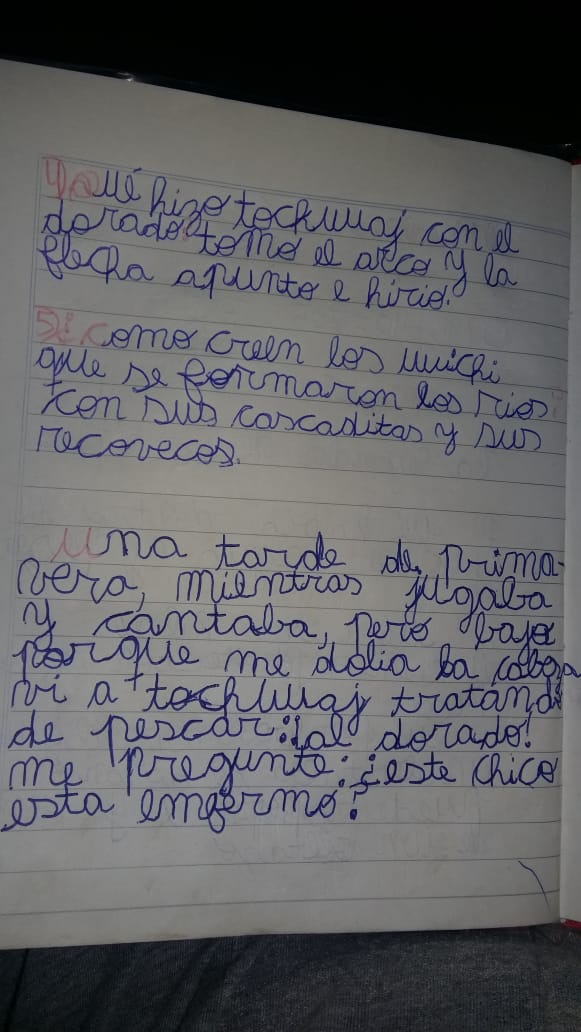 4) Qué hizo tockwuaj con el
dorado? tomo el arco y la
flecha apunto e hirio.
5¿Como creen los wuichi
que se formaron los rios?
con sus cascaditas y sus
recovecos.
Una tarde de prima-
vera, mientras jugaba
y cantaba, pero baje
porque me dolia la cabeza
vi a tockwuaj tratando
de pescar: ¡al dorado!
me pregunte: ¿este chico
esta enfermo?